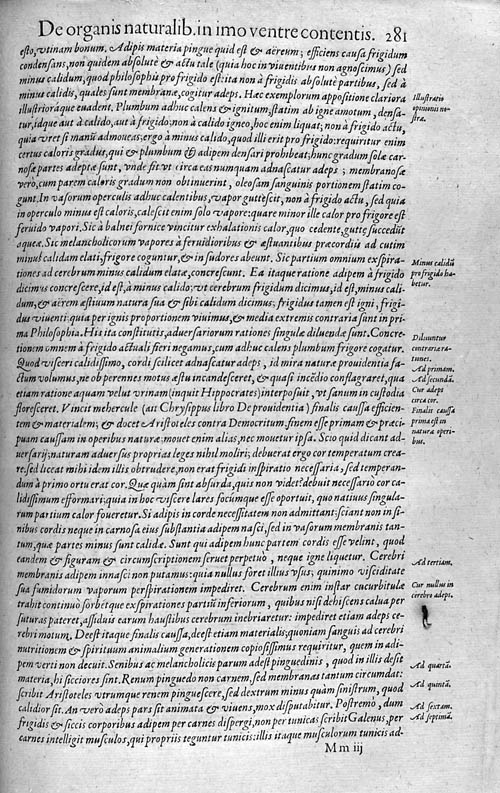 De organis naturalib. in imo ventre contentis. 281
esto, vtinam bonum. Adipis materia pingue quid est & aëreum; efficiens causa frigidum
condensans, non quidem absolutè & actu tale (quia hoc in viuentibus non agnoscimus) sed
minus calidum, quod philosophis pro frigido est: ita non à frigidis absolutè partibus, sed à
minus calidis, quales sunt membranæ, cogitur adeps. Hæc exemplorum appositione clariora
illustrioráque euadent. Plumbum adhuc calens & ignitum, statim ab igne amotum, densa-
tur, idque aut à calido, aut à frigido: non à calido igneo, hoc enim liquat; non à frigido actu,
quia vret si manū admoueas: ergo à minus calido, quod illi erit pro frigido: requiritur enim
certus caloris gradus, qui & plumbum & adipem densari prohibeat; hunc gradum solæ car-
nosæ partes adeptæ sunt, vnde fit vt circa eas numquam adnascatur adeps; membranosæ
verò, cum parem caloris gradum non obtinuerint, oleosam sanguinis portionem statim co-
gunt. In vasorum operculis adhuc calentibus, vapor guttescit, non à frigido actu, sed quia
in operculo minus est caloris, calescit enim solo vapore: quare minor ille calor pro frigore est
feruido vapori. Sic à balnei fornice vincitur exhalationis calor, quo cedente, guttę succedūt
aqueæ. Sic melancholicorum vapores à feruidioribus & æstuantibus præcordiis ad cutim
minus calidam elati, frigore coguntur, & in sudores abeunt. Sic partium omnium exspira-
tiones ad cerebrum minus calidum elatæ, concrescunt. Ea itaque ratione adipem à frigido
dicimus concrescere, id est, à minus calido; vt cerebrum frigidum dicimus, id est, minus cali-
dum, & aërem æstiuum natura sua & sibi calidum dicimus; frigidus tamen est igni, frigi-
dus viuenti: quia per ignis proportionem viuimus, & media extremis contraria sunt in pri-
ma Philosophia. His ita constitutis, aduersariorum rationes singulæ diluendæ sunt. Concre-
tionem omnem à frigido actuali fieri negamus, cum adhuc calens plumbum frigore cogatur.
Quod visceri calidissimo, cordi scilicet adnascatur adeps, id mira naturæ prouidentia fa-
ctum volumus, ne ob perennes motus æstu incandesceret, & quasi incēdio conflagraret, qua
etiam ratione aquam velut vrinam (inquit Hippocrates) interposuit, vt sanum in custodia
floresceret. Vincit mehercule (ait Chrysippus libro De prouidentia) finalis causa efficien-
tem & materialem; & docet Aristoteles contra Democritum, finem esse primam & præci-
puam caussam in operibus naturæ: mouet enim alias, nec mouetur ipsa. Scio quid dicant ad-
uersarij; naturam aduersus proprias leges nihil moliri; debuerat ergo cor temperatum crea-
re. sed liceat mihi idem illis obtrudere, non erat frigidi inspiratio necessaria, sed temperan-
dum à primo ortu erat cor. Quæ quàm sint absurda, quis non videt? debuit necessariò cor ca-
lidissimum efformari: quia in hoc viscere lares focúmque esse oportuit, quo natiuus singula-
rum partium calor foueretur. Si adipis in corde necessitatem non admittant: sciant non in si-
nibus cordis neque in carnosa eius substantia adipem nasci, sed in vasorum membranis tan-
tum, quæ partes minus sunt calidæ. Sunt qui adipem hunc partem cordis esse velint, quod
eandem & figuram & circumscriptionem seruet perpetuò, neque igne liquetur. Cerebri
membranis adipem innasci non putamus: quia nullus foret illius vsus; quinimo visciditate
sua fumidorum vaporum perspirationem impediret. Cerebrum enim instar cucurbitulæ
trahit continuò sorbétque exspirationes partiū inferiorum, quibus nisi dehiscens calua per
suturas pateret, assiduis earum haustibus cerebrum inebriaretur: impediret etiam adeps ce-
rebri motum. Deest itaque finalis caussa, deest etiam materialis: quoniam sanguis ad cerebri
nutritionem & spirituum animalium generationem copiosissimus requiritur, quem in adi-
pem verti non decuit. Senibus ac melancholicis parum adest pinguedinis, quod in illis desit
materia, hi sicciores sint. Renum pinguedo non carnem, sed membranas tantum circumdat:
scribit Aristoteles vtrumque renem pinguescere, sed dextrum minus quàm sinistrum, quod
calidior sit. An verò adeps pars sit animata & viuens, mox disputabitur. Postremò, dum
frigidis & siccis corporibus adipem per carnes dispergi, non per tunicas scribit Galenus, per
carnes intelligit musculos, qui propriis teguntur tunicis: illis itaque musculorum tunicis ad-
Mm iij
Illustratio
opinionis no-
stræ.
Minus calidū
pro frigido ha-
betur.
Diluuntur
contrariæ ra-
tiones.
Ad primam.
Ad secundā.
Cur adeps
circa cor.
Finalis caussa
prima est in
naturæ operi-
bus.
Ad tertiam.
Cur nullus in
cerebro adeps.
Ad quartā.
Ad quintā.
Ad sextam.
Ad septimā.